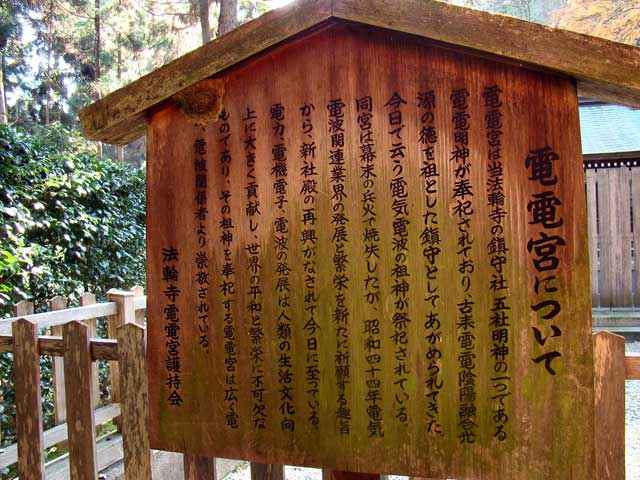 電電宮について
電電宮は当法輪寺の鎮守社 五社明神の一つである
電電明神が奉祀されており、古来電電陰陽融合光
源の徳を祖とした鎮守としてあがめられてきた。
今日で云う電気電波の祖神が祭祀されている。
同宮は幕末の兵火で焼失したが、昭和四十四年電気
電波関連業界の発展と繁栄を新たに祈願する趣旨
から、新社殿の再興がなされて今日に至っている。
電力、電機電子、電波の発展は人類の生活文化向
上に大きく貢献し、世界の平和と繁栄に不可欠な
ものであり、その祖神を奉祀する電電宮は広く電
、電波関係者より崇敬されている。
法輪寺電電宮護持会